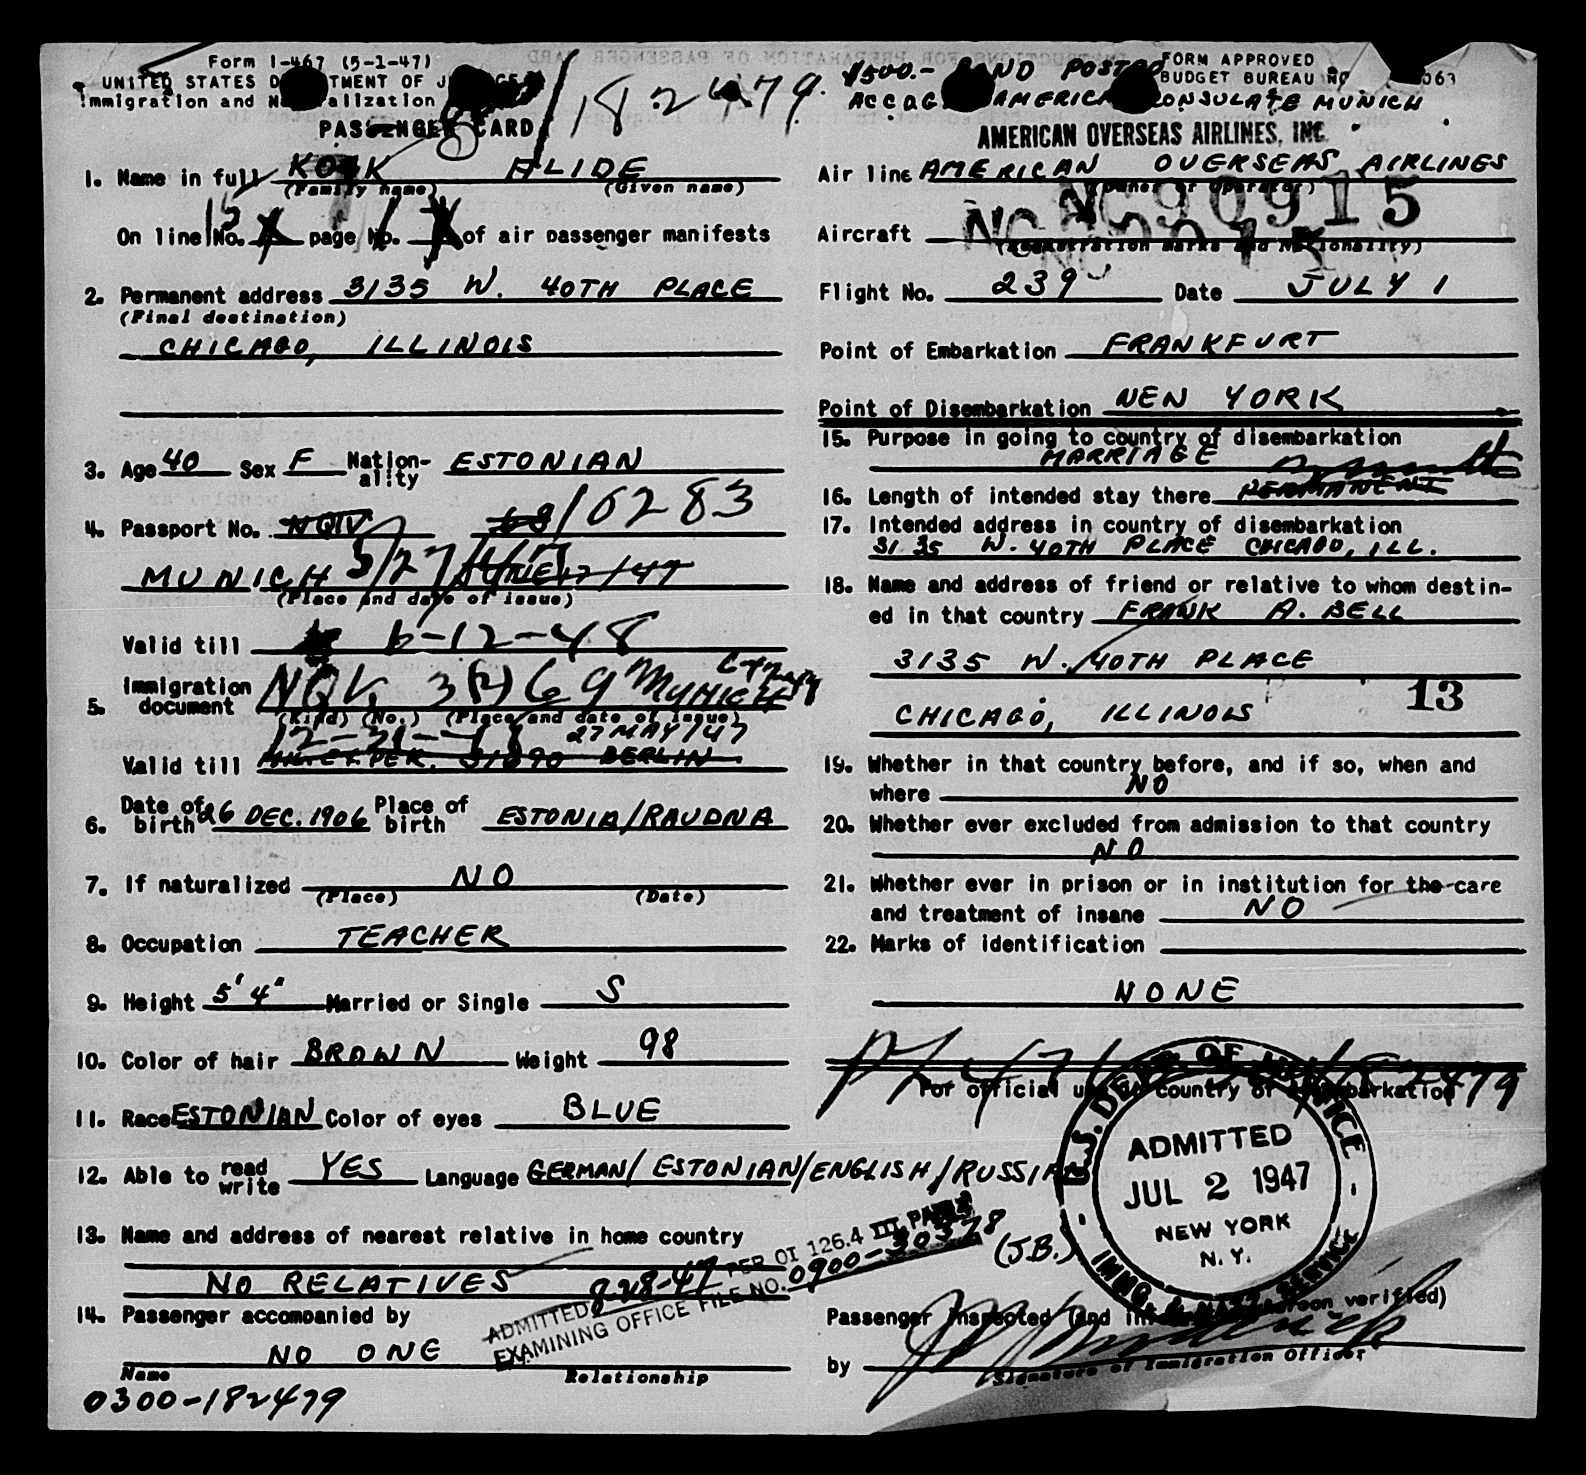 Form I-467 (5-1-47)
UNITED STATES
Immigration and
PASSENGER CARD
182479.
$500.- POSTED
AMERICAN CONSULATE MUNICH
FORM APPROVED
BUDGET BUREAU NO
AMERICAN OVERSEAS AIRLINES, INC.
1. Name in full KOSK ALIDE
(Family name) (Given name)
On line No. 13 page No. 1 of air passenger manifests
2. Permanent address 3135 W. 40TH PLACE
(Final destination)
CHICAGO, ILLINOIS
3. Age 40 Sex F Nation-ality ESTONIAN
4. Passport No. NQIV 10283
MUNICH 5/27/47 JUNE 12/47
(Place and date of issue)
Valid till 6-12-48
5. Immigration document NQV 3(2) 69 MUNICH
(Kind) (No.) (Place and date of issue)
27 MAY/47
Valid till 31090 BERLIN
6. Date of birth 26 DEC. 1906 Place of birth ESTONIA/RAUDNA
7. If naturalized NO
(Place) (Date)
8. Occupation TEACHER
9. Height 5' 4" Married or Single S
10. Color of hair BROWN Weight 98
11. Race ESTONIAN Color of eyes BLUE
12. Able to read write YES Language GERMAN/ESTONIAN/ENGLISH/RUSSIAN
13. Name and address of nearest relative in home country
NO RELATIVES
14. Passenger accompanied by
NO ONE
Name Relationship
0300-182479
ADMITTED 8-28-47 PER OI 126.4 III
EXAMINING OFFICE FILE NO. 0900-30378 (J.B.)
Air line AMERICAN OVERSEAS AIRLINES
(Owner or operator)
Aircraft NC90915
(Registration marks and Nationality)
Flight No. 239 Date JULY 1
Point of Embarkation FRANKFURT
Point of Disembarkation NEW YORK
15. Purpose in going to country of disembarkation
MARRIAGE
16. Length of intended stay there PERMANENT
17. Intended address in country of disembarkation
3135 W. 40TH PLACE CHICAGO, ILL.
18. Name and address of friend or relative to whom destin-
ed in that country FRANK A. BELL
3135 W. 40TH PLACE
13
CHICAGO, ILLINOIS
19. Whether in that country before, and if so, when and
where NO
20. Whether ever excluded from admission to that country
NO
21. Whether ever in prison or in institution for the care
and treatment of insane NO
22. Marks of identification
NONE
For official use of country of disembarkation
U.S. DEPT. OF JUSTICE
ADMITTED
JUL 2 1947
NEW YORK
N.Y.
IMMG. & NATZ. SERVICE
Passenger inspected (and verified)
by
Signature of Immigration Officer